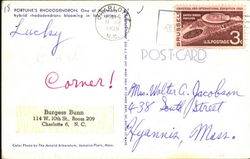 FORTUNE'S RHODODENDRON. One of
hybrid rhododendrons blooming in
Lucky
Corner!
Burgess Bunn
114 W. 10th St., Room 209
Charlotte 6, N. C.
Color Photo by The Arnold Arboretum, Jamaica Plain, Mass.
POST CARD
BRUSSELS
U.S. POSTAGE
3¢
Mrs. Walter A. Jacobson
438 South Street
Hyannis, Mass.